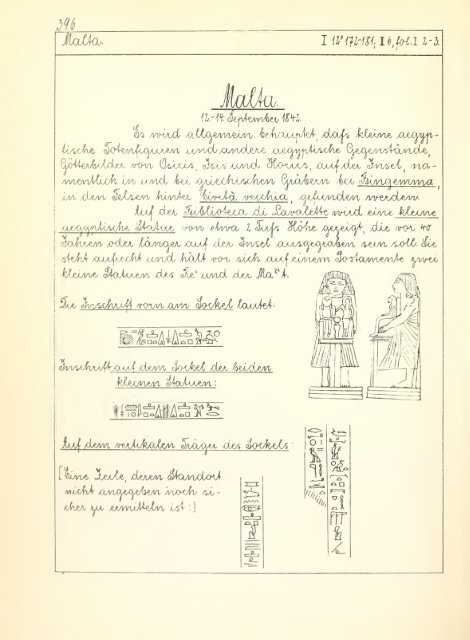 396
Malta. I 12° 172-181; II 6, fol. I 2-3.
Malta.
12-14 September 1842.
Es wird allgemein behauptet, dafs kleine aegyp-
tische Totenfiguren und andere aegyptische Gegenstände,
Götterbilder von Osiris, Isis und Horus, auf der Insel, na-
mentlich in und bei griechischen Gräbern bei Bingemma,
in den Felsen hinter Cività vecchia, gefunden werden
Auf der Biblioteca di Lavalette wird eine kleine
aegyptische Statue von etwa 2 Fufs Höhe gezeigt, die vor 40
Jahren oder länger auf der Insel ausgegraben sein soll. Sie
steht aufrecht und hält vor sich auf einem Postamente zwei
kleine Statuen des Re und der Ma t.
Die Inschrift vorn am Sockel lautet:
Inschrift auf dem Sockel der beiden
kleinen Statuen:
Auf dem vertikalen Träger des Sockels:
[Eine Zeile, deren Standort
nicht angegeben noch si-
cher zu ermitteln ist:]